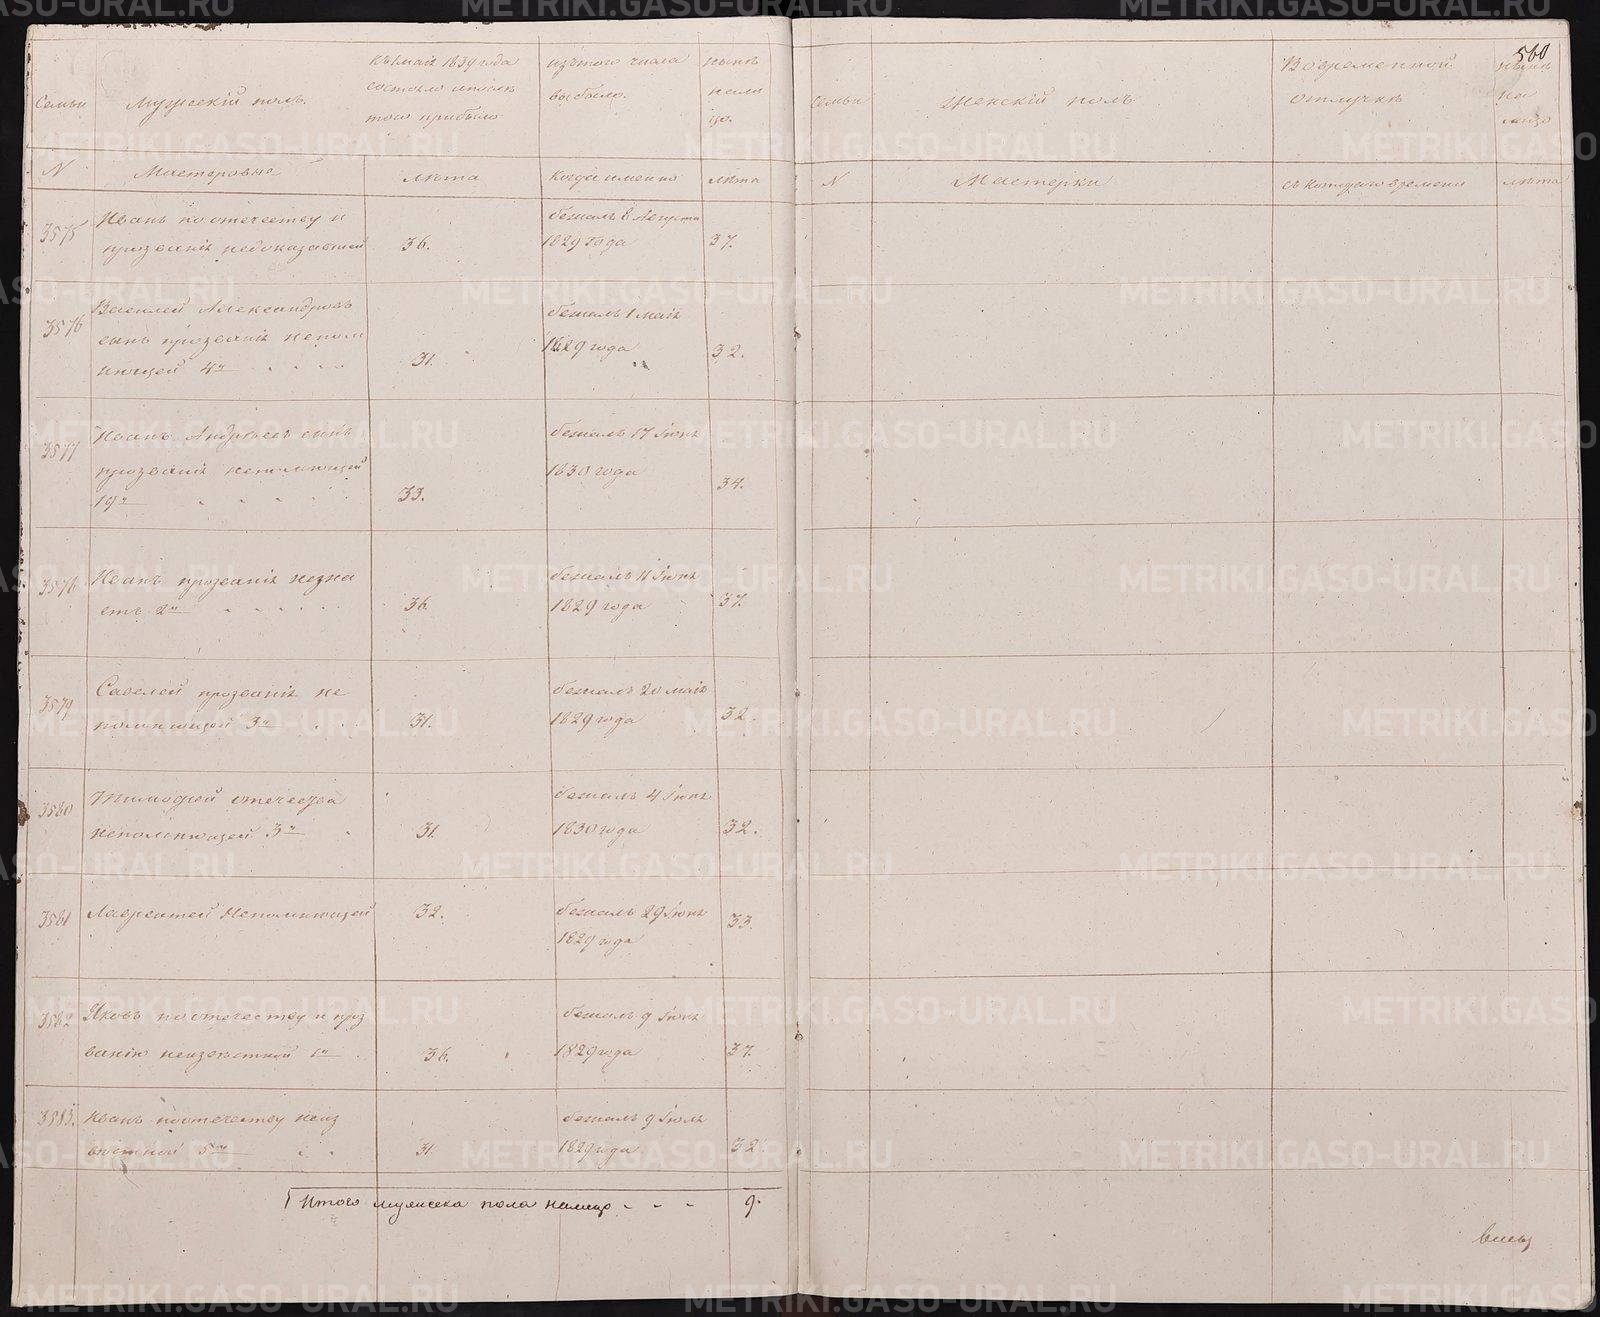 560
Семьи
Мужескій полъ.
Къ 1 маія 1839 года
состояло и послѣ
того прибыло
изъ того числа
выбыло.
нынѣ
нали
цо.
Семьи
Женскій полъ
Вовременной
отлучкѣ
нынѣ
на
лицо
N
Мастеровыя
лѣта
Когда именно
лѣта
N
Мастерки
съ котораго времени
лѣта
3575
Иванъ по отечеству и
прозванія недоказавшей
36.
бежалъ 8 Августа
1829 года
37.
3576
Василей Александровъ
сынъ прозванія непом
нющей 4й
31.
бежалъ 1 маія
1829 года
32.
3577
Иванъ Андреевъ сынъ
прозванія непомнющей
19й
33.
бежалъ 17 Іюня
1830 года
34.
3578
Иванъ прозванія незна
етъ 2й
36.
бежалъ 11 Іюня
1829 года
37.
3579
Савелей прозванія не
помнющей 3й
31.
бежалъ 20 маія
1829 года
32.
3580
Тимофей отечества
непомнющей 3й
31.
бежалъ 4 Іюня
1830 года
32.
3581
Лаврентей Непомнющей
32.
бежалъ 29 Іюня
1829 года
33.
3582
Яковъ по отечеству и проз
ванію неизвѣстной 1й
36.
бежалъ 9 Іюня
1829 года
37.
3583.
Иванъ по отечеству неиз
вѣстной 5й
31.
бежалъ 9 Іюля
1829 года
32.
Итого мужеска пола налицо
9.
METRIKI.GASO-URAL.RU